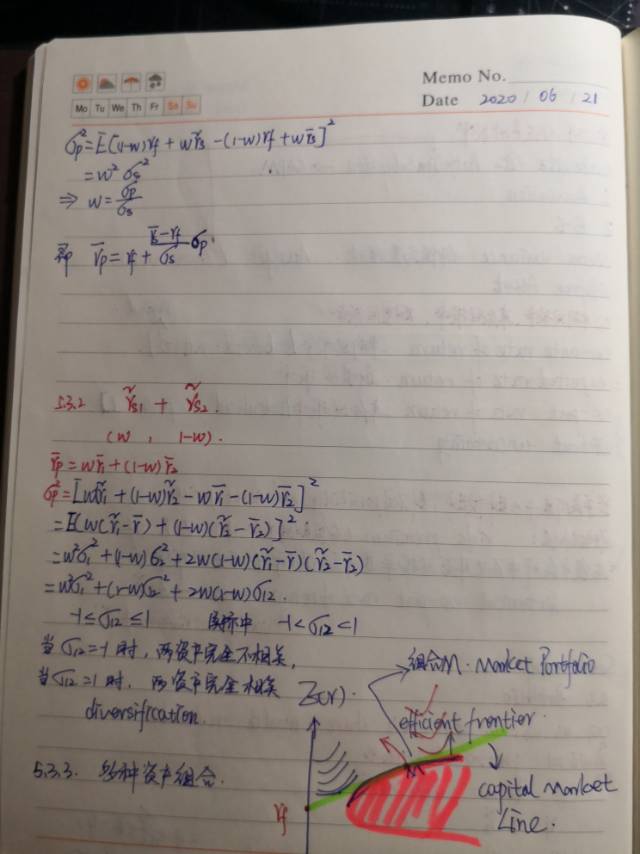 Memo No.
Mo Tu We Th Fr Sa Su
Date 2020 / 06 / 21
σp²=E[(1-w)rf + wr̃s -(1-w)rf + wr̄s]²
=w²σs²
⇒ w=σp/σs
即 r̄p = rf + (r̄s-rf)/σs σp.
5.3.2 r̃s1 + r̃s2.
(w , 1-w).
r̄p=wr̄1+(1-w)r̄2
σp²=[wr̃1 +(1-w)r̃2 -wr̄1 -(1-w)r̄2]²
=E[w(r̃1-r̄)+(1-w)(r̃2-r̄2)]²
=w²σ1²+(1-w)σ2²+2w(1-w)(r̃1-r̄)(r̃2-r̄2)
=w²σ1²+(1-w)σ2²+2w(1-w)σ12.
-1≤σ12≤1 实际中 -1<σ12<1
当σ12=-1时，两资产完全不相关，
当σ12=1时，两资产完全相关
diversification.
组合M. Market Portfolio
E(r).
efficient frontier.
M
5.3.3. 多种资产组合.
rf
capital market
Line.